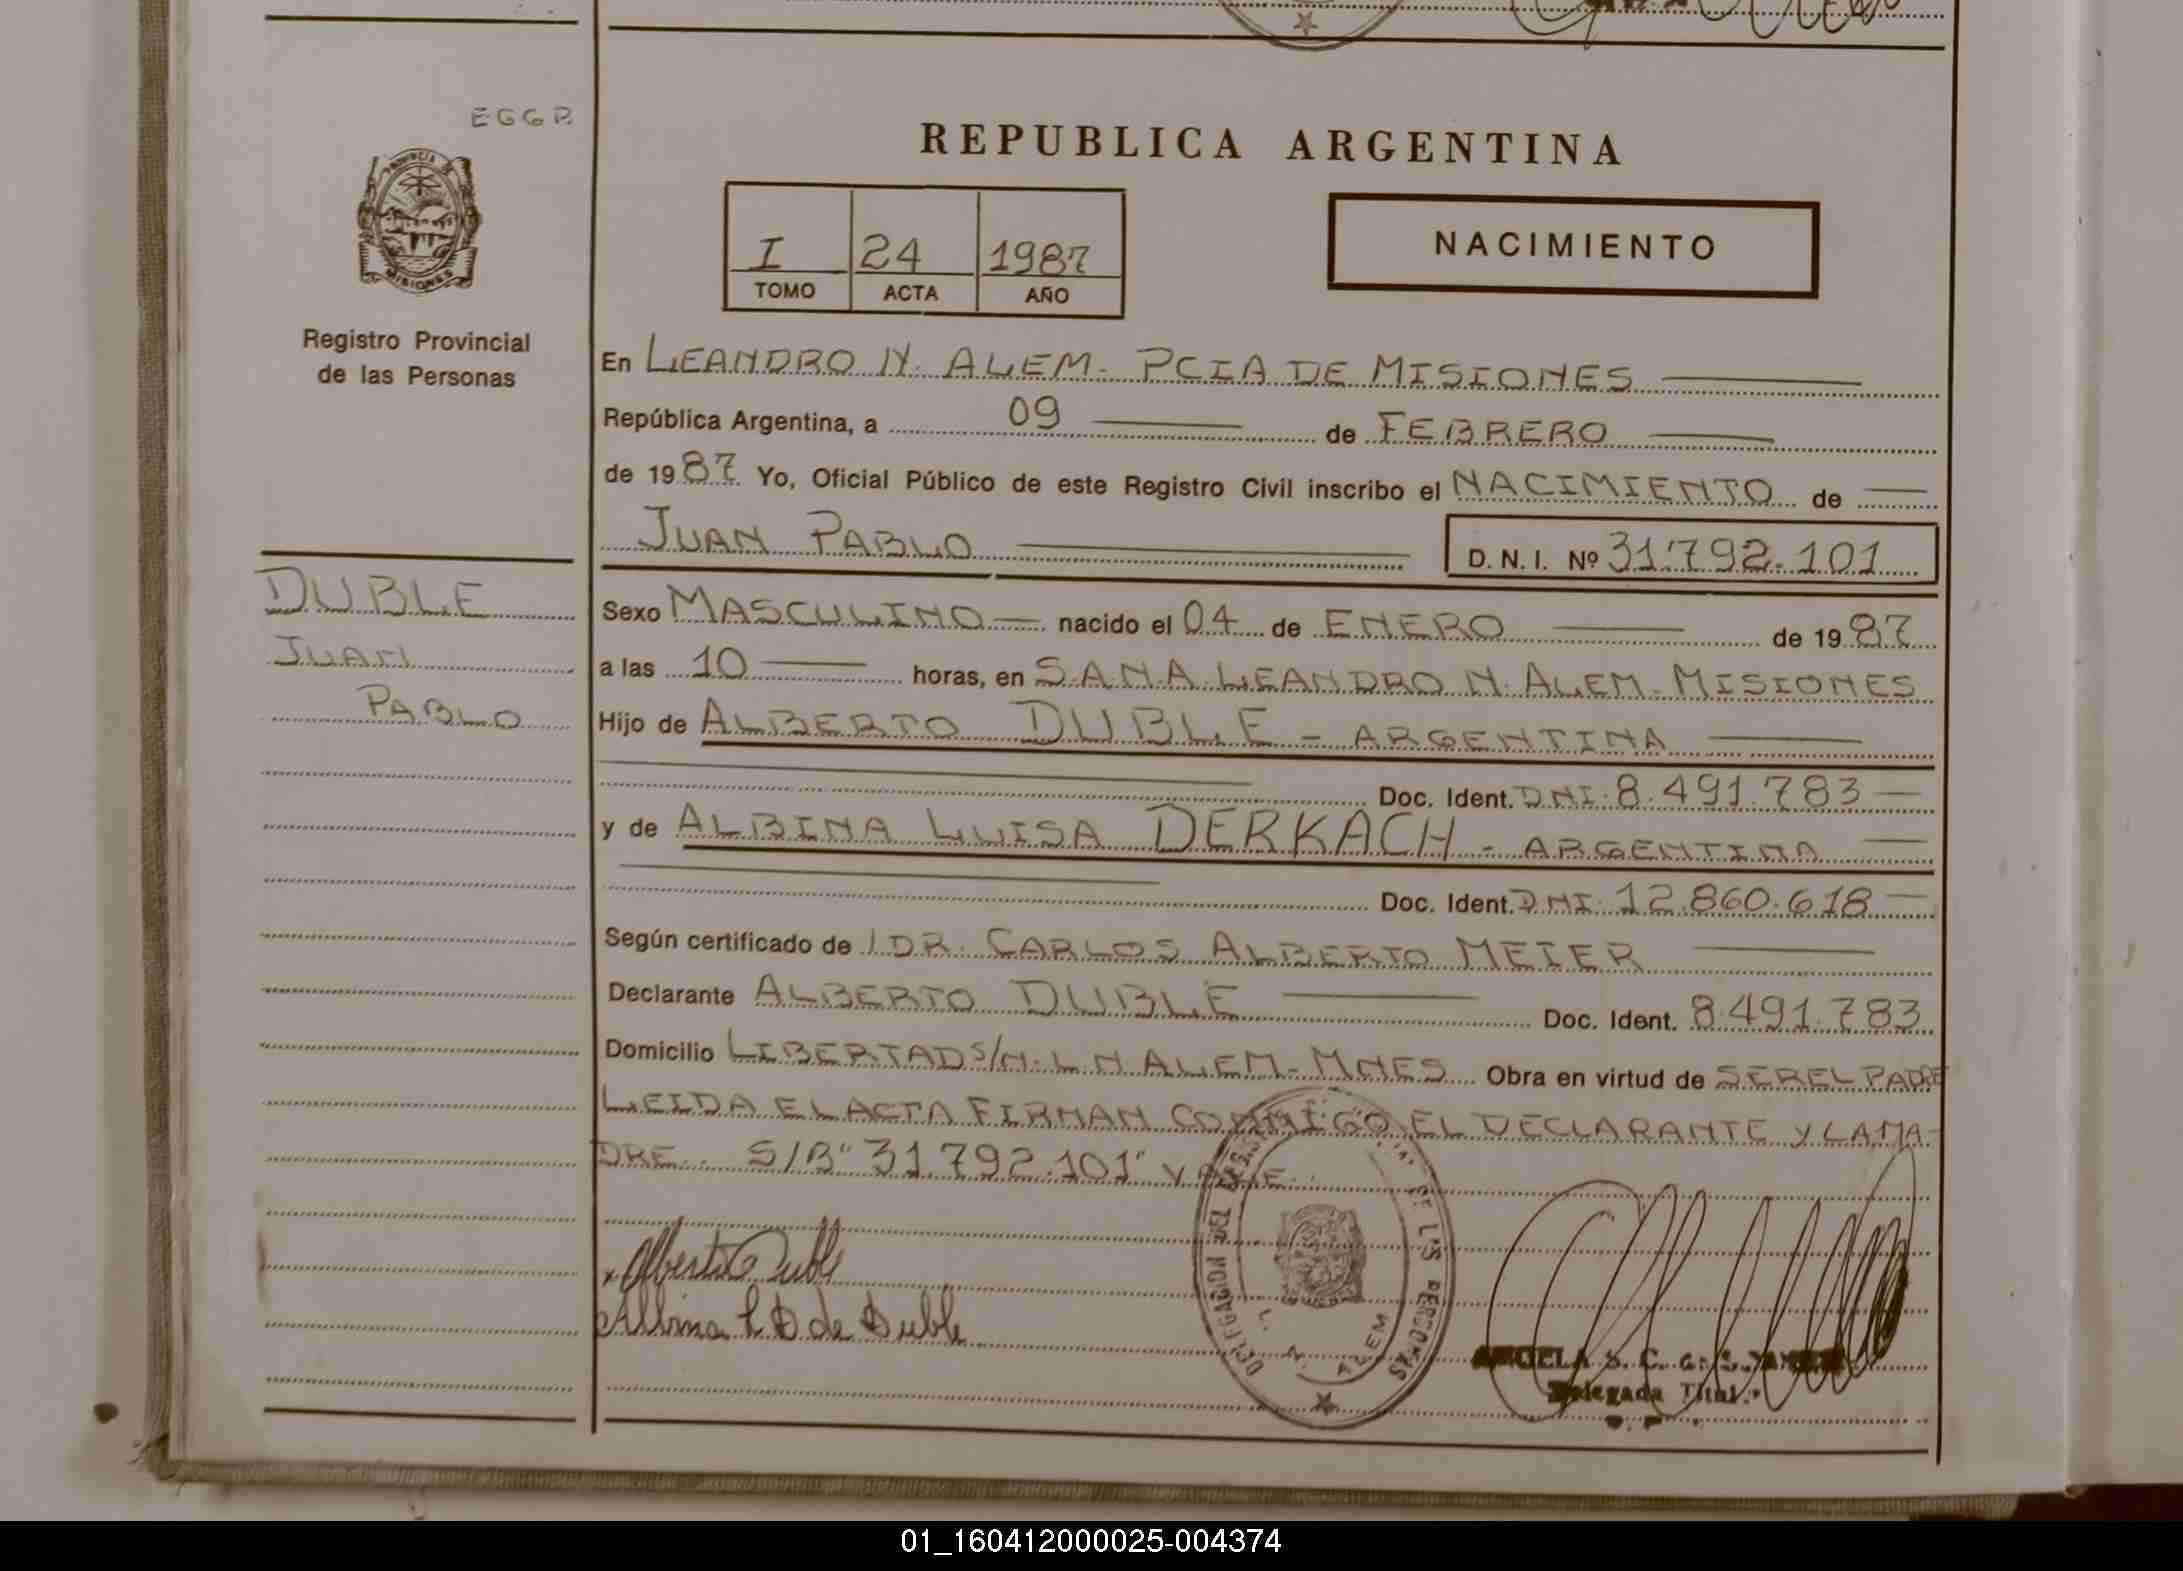 EGGP.
PROVINCIA DE
MISIONES
Registro Provincial
de las Personas
DUBLE
JUAN
PABLO
REPUBLICA ARGENTINA
I 24 1987
TOMO ACTA AÑO
NACIMIENTO
En LEANDRO N. ALEM. PCIA DE MISIONES
República Argentina, a 09 de FEBRERO
de 1987 Yo, Oficial Público de este Registro Civil inscribo el NACIMIENTO de
JUAN PABLO D. N. I. Nº 31.792.101
Sexo MASCULINO nacido el 04 de ENERO de 1987
a las 10 horas, en S.A.N.A. LEANDRO N. ALEM. MISIONES
Hijo de ALBERTO DUBLE - ARGENTINA
Doc. Ident. DNI. 8.491.783
y de ALBINA LUISA DERKACH - ARGENTINA
Doc. Ident. DNI. 12.860.618
Según certificado de DR. CARLOS ALBERTO MEIER
Declarante ALBERTO DUBLE Doc. Ident. 8.491.783
Domicilio LIBERTAD S/N. L N ALEM - MNES Obra en virtud de SER EL PADRE
LEIDA EL ACTA FIRMAN CONMIGO EL DECLARANTE Y LA MA-
DRE. S/B" 31.792.101" VALE.
Alberto Duble
Albina L D de Duble
DELEGACION DEL DE LAS PERSONAS
L. N. ALEM
ANGELA S. C.
Delegada Titul.
01_160412000025-004374